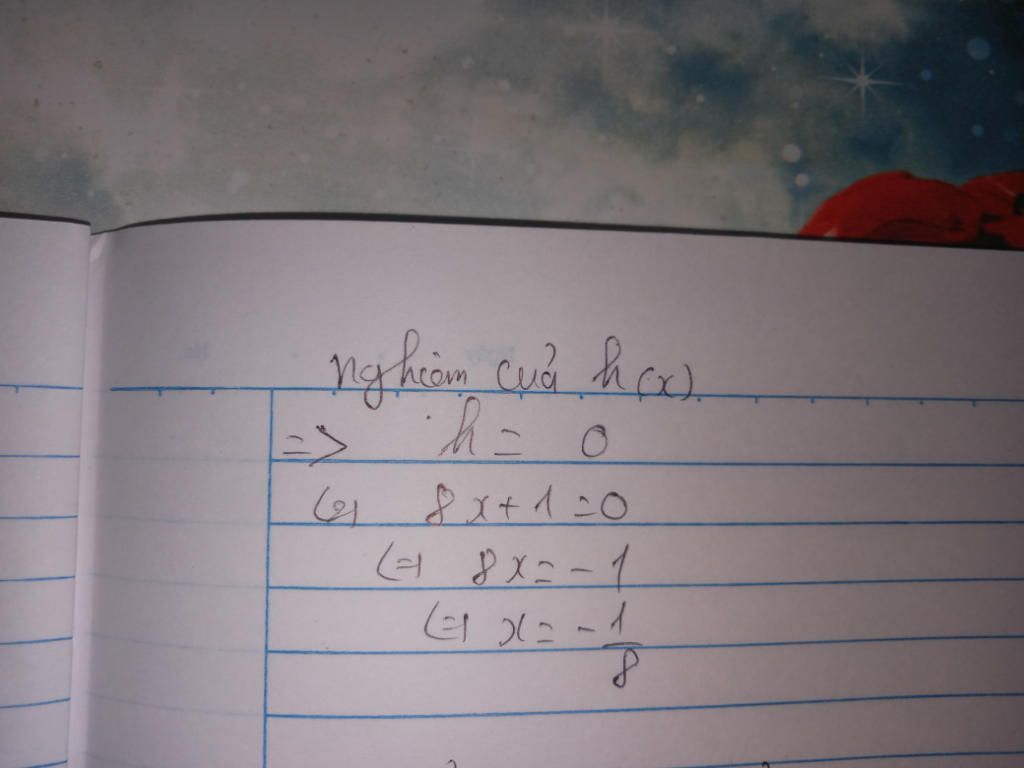 Nghiệm của h(x)
=> h = 0
(=) 8x + 1 = 0
(=) 8x = -1
(=) x = -1/8